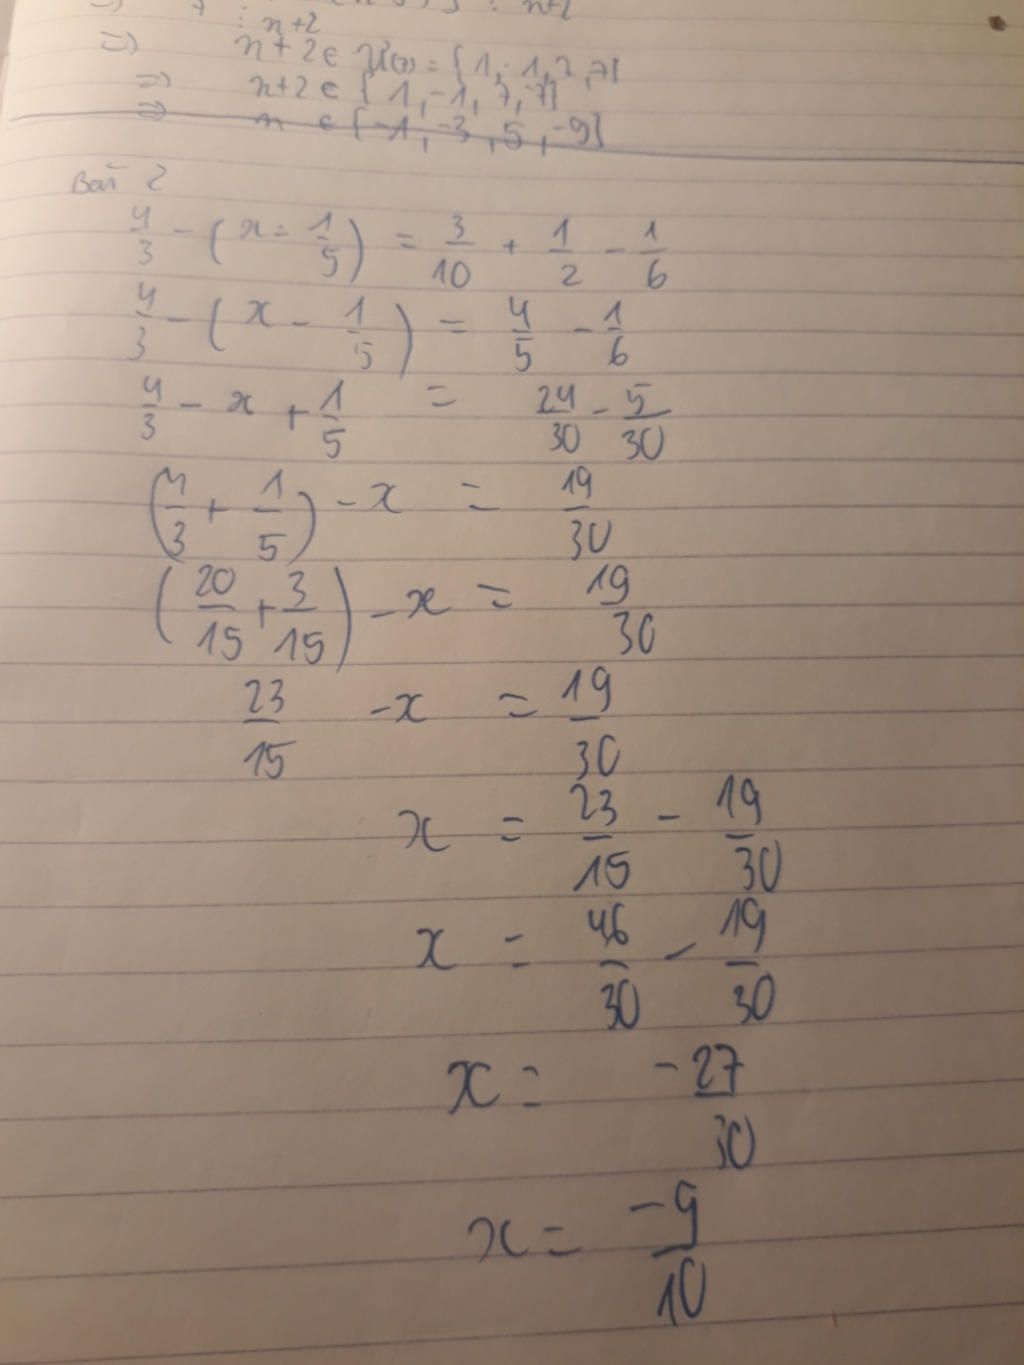 ⋮ n+2
⇒ n+2 ∈ Ư(7) = {1, -1, 7, 7}
⇒ n+2 ∈ {1, -1, 7, -7}
⇒ n ∈ {-1, -3, 5, -9}
Bài 2
4/3 - (x - 1/5) = 3/10 + 1/2 - 1/6
4/3 - (x - 1/5) = 4/5 - 1/6
4/3 - x + 1/5 = 24/30 - 5/30
(4/3 + 1/5) - x = 19/30
(20/15 + 3/15) - x = 19/30
23/15 - x = 19/30
x = 23/15 - 19/30
x = 46/30 - 19/30
x = -27/30
x = -9/10